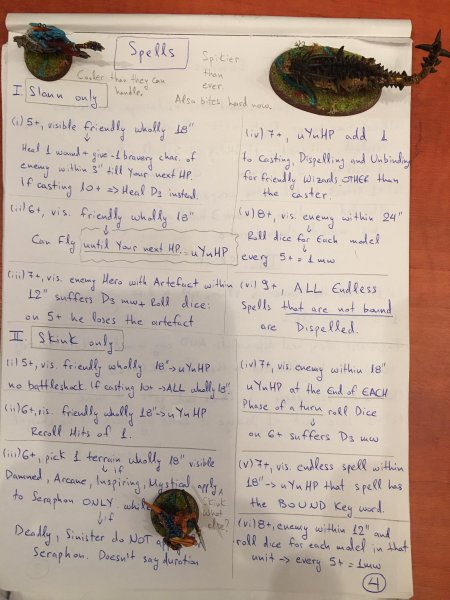 Spells
Cooler than they can
handle.
Spikier
than
ever.
Also bites hard now.
I. Slann only
(i) 5+, visible friendly wholly 18"
Heal 1 wound + give -1 bravery char. of
enemy within 3" till Your next HP.
If casting 10+ => Heal D3 instead.
(ii) 6+, vis. friendly wholly 18"
Can Fly until Your next HP. = uYnHP
(iii) 7+, vis. enemy Hero with Artefact within
12" suffers D3 mw + Roll dice:
on 5+ he loses the artefact
(iv) 7+, uYnHP add 1
to Casting, Dispelling and Unbinding
for friendly Wizards OTHER than
the caster.
(v) 8+, vis. enemy within 24"
Roll dice for Each model
every 5+ = 1 mw
(vi) 9+, ALL Endless
Spells that are not bound
are Dispelled.
II. Skink only
(i) 5+, vis. friendly wholly 18" → uYnHP
no battleshock. If casting 10+ → ALL wholly 18".
(ii) 6+, vis. friendly wholly 18" → uYnHP
Reroll Hits of 1.
(iii) 6+, pick 1 terrain wholly 18" visible
if
Damned, Arcane, Inspiring, Mystical apply
to Seraphon ONLY
if
Deadly, Sinister do NOT
Seraphon. Doesn't say duration
A
Skink
What
else?
(iv) 7+, vis. enemy within 18"
uYnHP at the End of EACH
Phase of a turn roll Dice
on 6+ suffers D3 mw
(v) 7+, vis. endless spell within
18" → uYnHP that spell has
the BOUND Key word.
(vi) 8+, enemy within 12" and
roll dice for each model in that
unit → every 5+ = 1mw
4